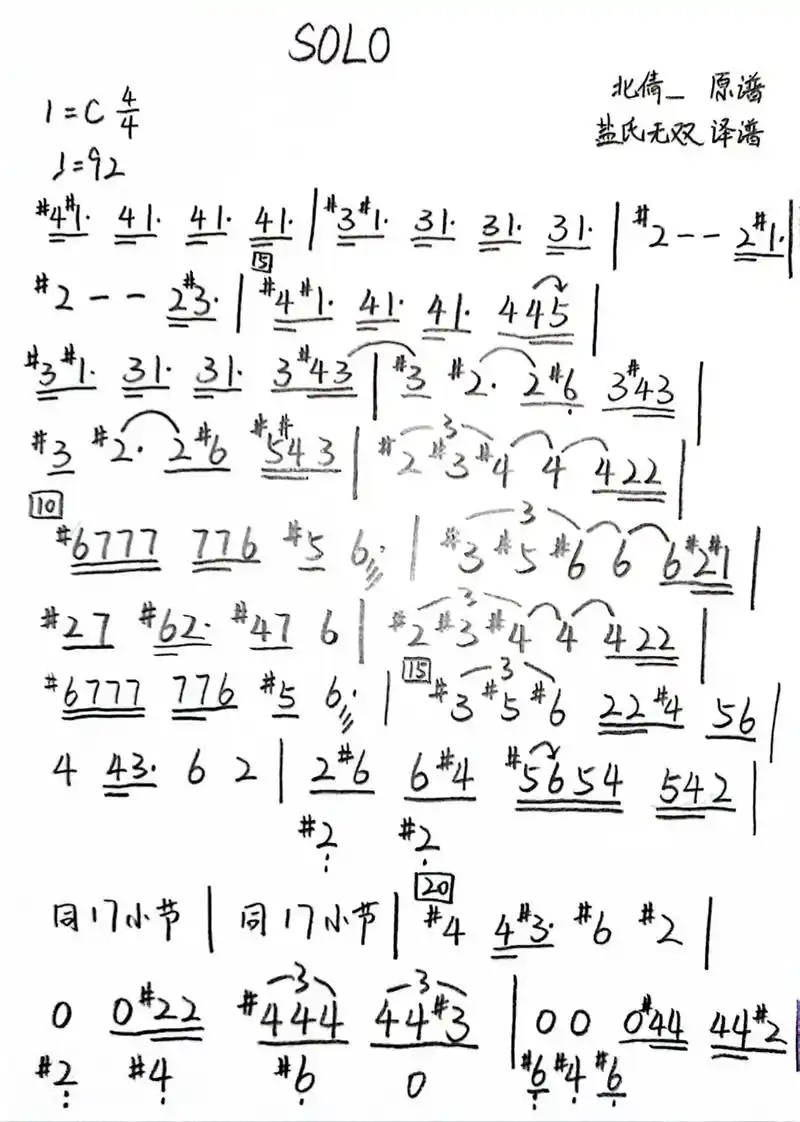 SOLO
北倩_ 原谱
1=C 4/4
盐氏无双 译谱
♩=92
#4#1· 41· 41· 41· | #3#1· 31· 31· 31· | #2 - - 2#1· |
5
#2 - - 2#3· | #4#1· 41· 41· 445 |
#3#1· 31· 31· 3#43 | #3 #2· 2#6 3#43 |
#3 #2· 2#6 #5#43 | #2#3#4 4 422 |
3
10
#6777 776 #5 6· | #3#5#6 6 6#2#1 |
3
#27 #62· #47 6 | #2#3#4 4 422 |
3
15
#6777 776 #5 6· | #3#5#6 22#4 56 |
3
4 43· 6 2 | 2#6 6#4 #5654 542 |
#2 #2
20
同17小节 | 同17小节 | #4 4#3· #6 #2 |
3 3
0 0#22 #444 44#3 | 0 0 0#44 44#2
#2 #4 #6 0 #6 #4 #6